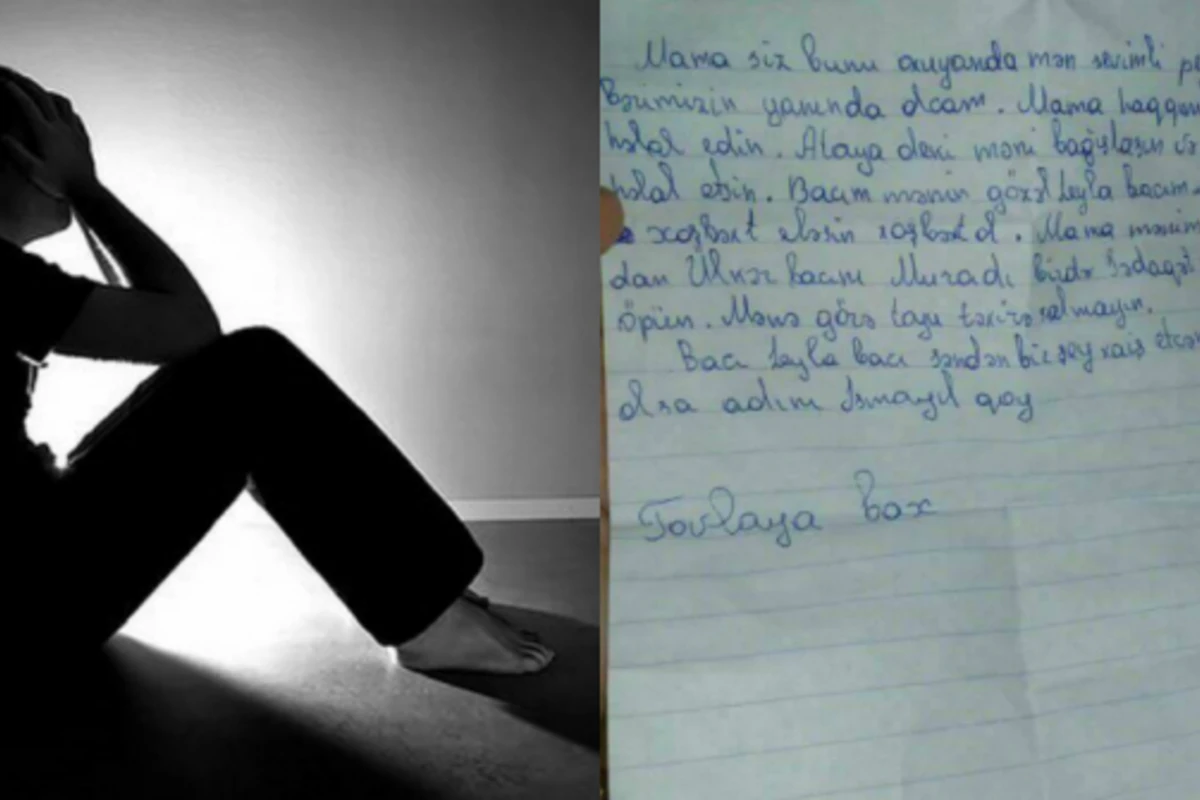 Mama siz bunu oxuyanda mən sevimli pe
bərimizin yanında olcam. Mama haqqın
halal edin. Ataya deki məni bağışlasın və
halal etsin. Bacım mənim gözəl Leyla bacım
xoşbəxt eləsin xoşbəxt ol. Mama mənim
dan Ülkər bacımı Muradı birdə Sədaqət
öpün. Mənə görə toyu təxirə salmayın.
Bacı Leyla bacı səndən bir şey xaiş etcəm
olsa adını İsmayıl qoy
Tovlaya bax